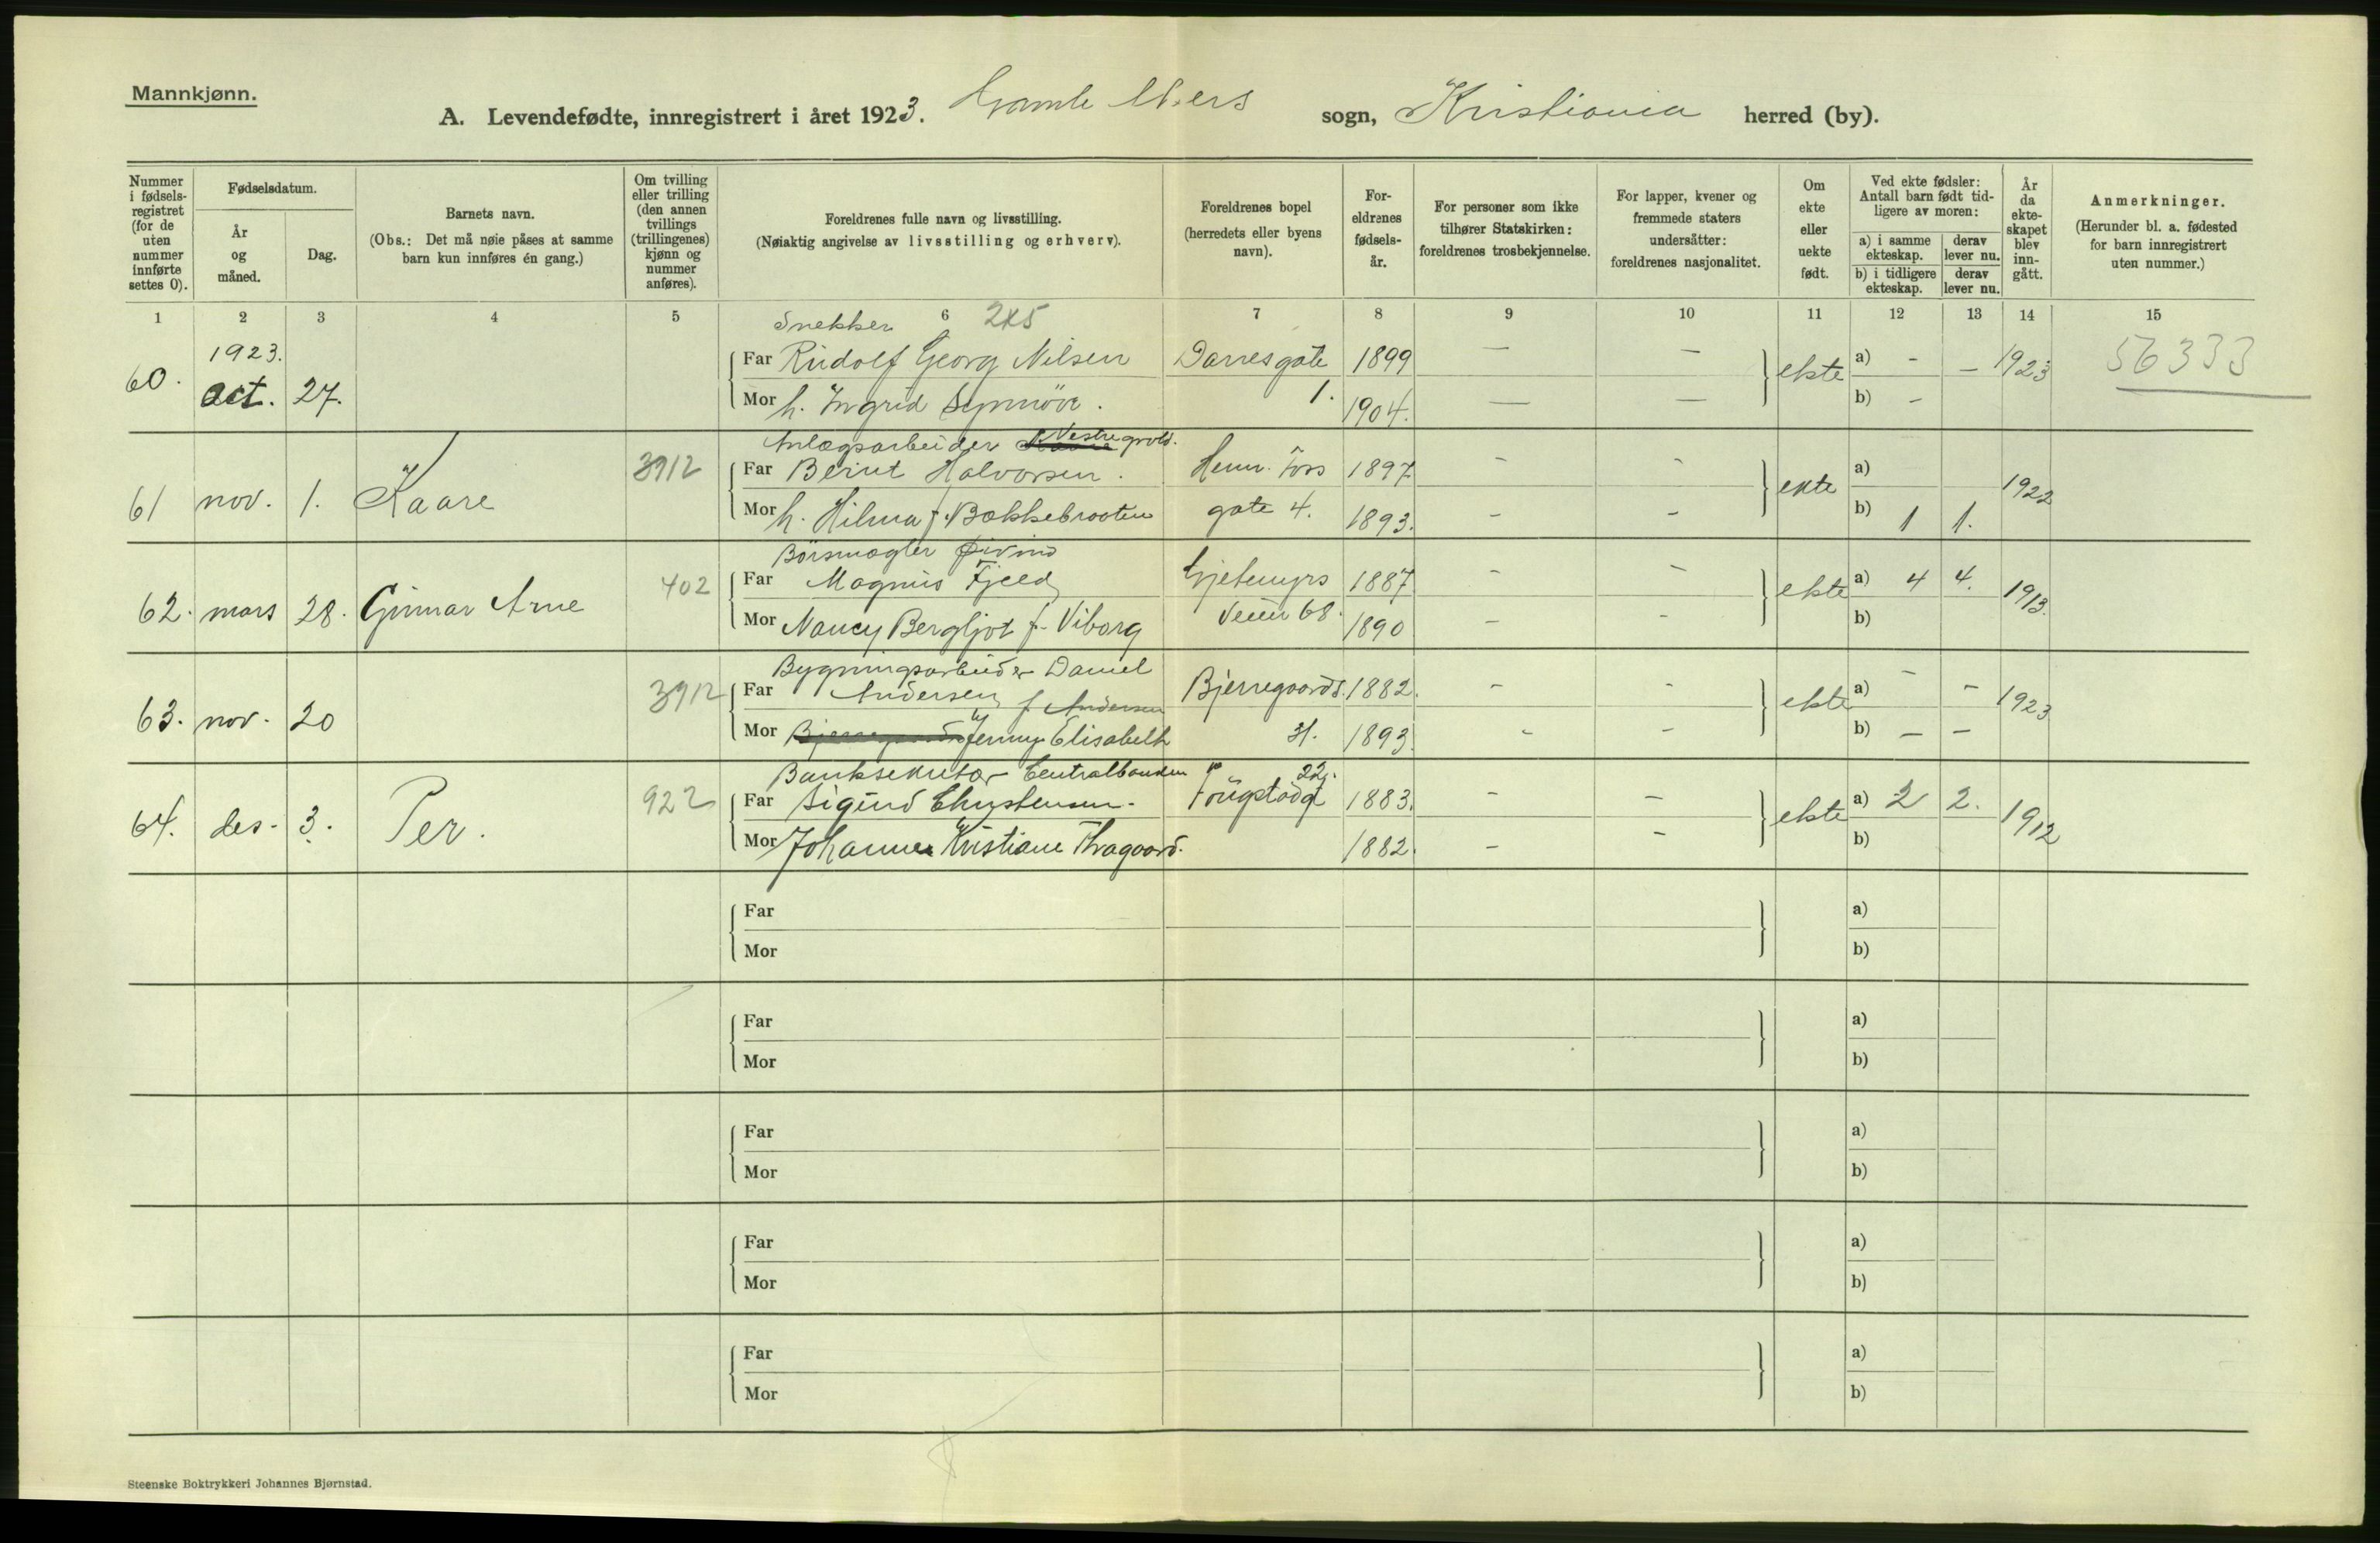 Mannkjønn.
A. Levendefødte, innregistrert i året 1923. Gamle Akers sogn, Kristiania herred (by).
Nummer i fødsels-registret (for de uten nummer innførte settes 0).
Fødselsdatum.
År og måned.
Dag.
Barnets navn.
(Obs.: Det må nøie påses at samme barn kun innføres én gang.)
Om tvilling eller trilling (den annen tvillings (trillingenes) kjønn og nummer anføres).
Foreldrenes fulle navn og livsstilling.
(Nøiaktig angivelse av livsstilling og erhverv).
Foreldrenes bopel (herredets eller byens navn).
For-eldrenes fødsels-år.
For personer som ikke tilhører Statskirken: foreldrenes trosbekjennelse.
For lapper, kvener og fremmede staters undersåtter: foreldrenes nasjonalitet.
Om ekte eller uekte født.
Ved ekte fødsler: Antall barn født tid-ligere av moren:
a) i samme ekteskap.
derav lever nu.
b) i tidligere ekteskap.
derav lever nu.
År da ekte-skapet blev inn-gått.
Anmerkninger.
(Herunder bl. a. fødested for barn innregistrert uten nummer.)
1 2 3 4 5 6 7 8 9 10 11 12 13 14 15
Snekker 2x5
1923.
60. oct. 27. Far Rudolf Georg Nilsen Darresgate 1899 — — ekte a) - — 1923 56333
Mor h. Ingrid Synnöve. 1. 1904. — — b) -
Anlægsarbeider Vestre grvld.
61 nov. 1. Kaare 3912 Far Bernt Halvorsen. Henr. Ibs 1897 - - ekte a) 1922
Mor h. Hilma f. Bakkebraaten gate 4. 1893. - - b) 1 1.
Börsmægler Øivind
62. mars 28. Gunnar Arne 402 Far Magnus Fjeld Gjetemyrs 1887 - - ekte a) 4 4. 1913.
Mor Nancy Bergljot f. Viborg veien 68. 1890 - - b)
Bygningsarbeider Daniel
63. nov. 20 3912 Far Andersen f. Andersen Bjerregaards. 1882. - - ekte a) - - 1923
Mor Jenny Elisabeth 31. 1893. - - b) - -
Banksekretær Centralbanken 22.
64. des. 3. Per. 922 Far Sigurd Christensen. Fougstadgt 1883. - - ekte a) 2 2. 1912
Mor Johanne Kristiane Thragaard. 1882. - - b)
Far a)
Mor b)
Far a)
Mor b)
Far a)
Mor b)
Far a)
Mor b)
Far a)
Mor b)
Steenske Boktrykkeri Johannes Bjørnstad.